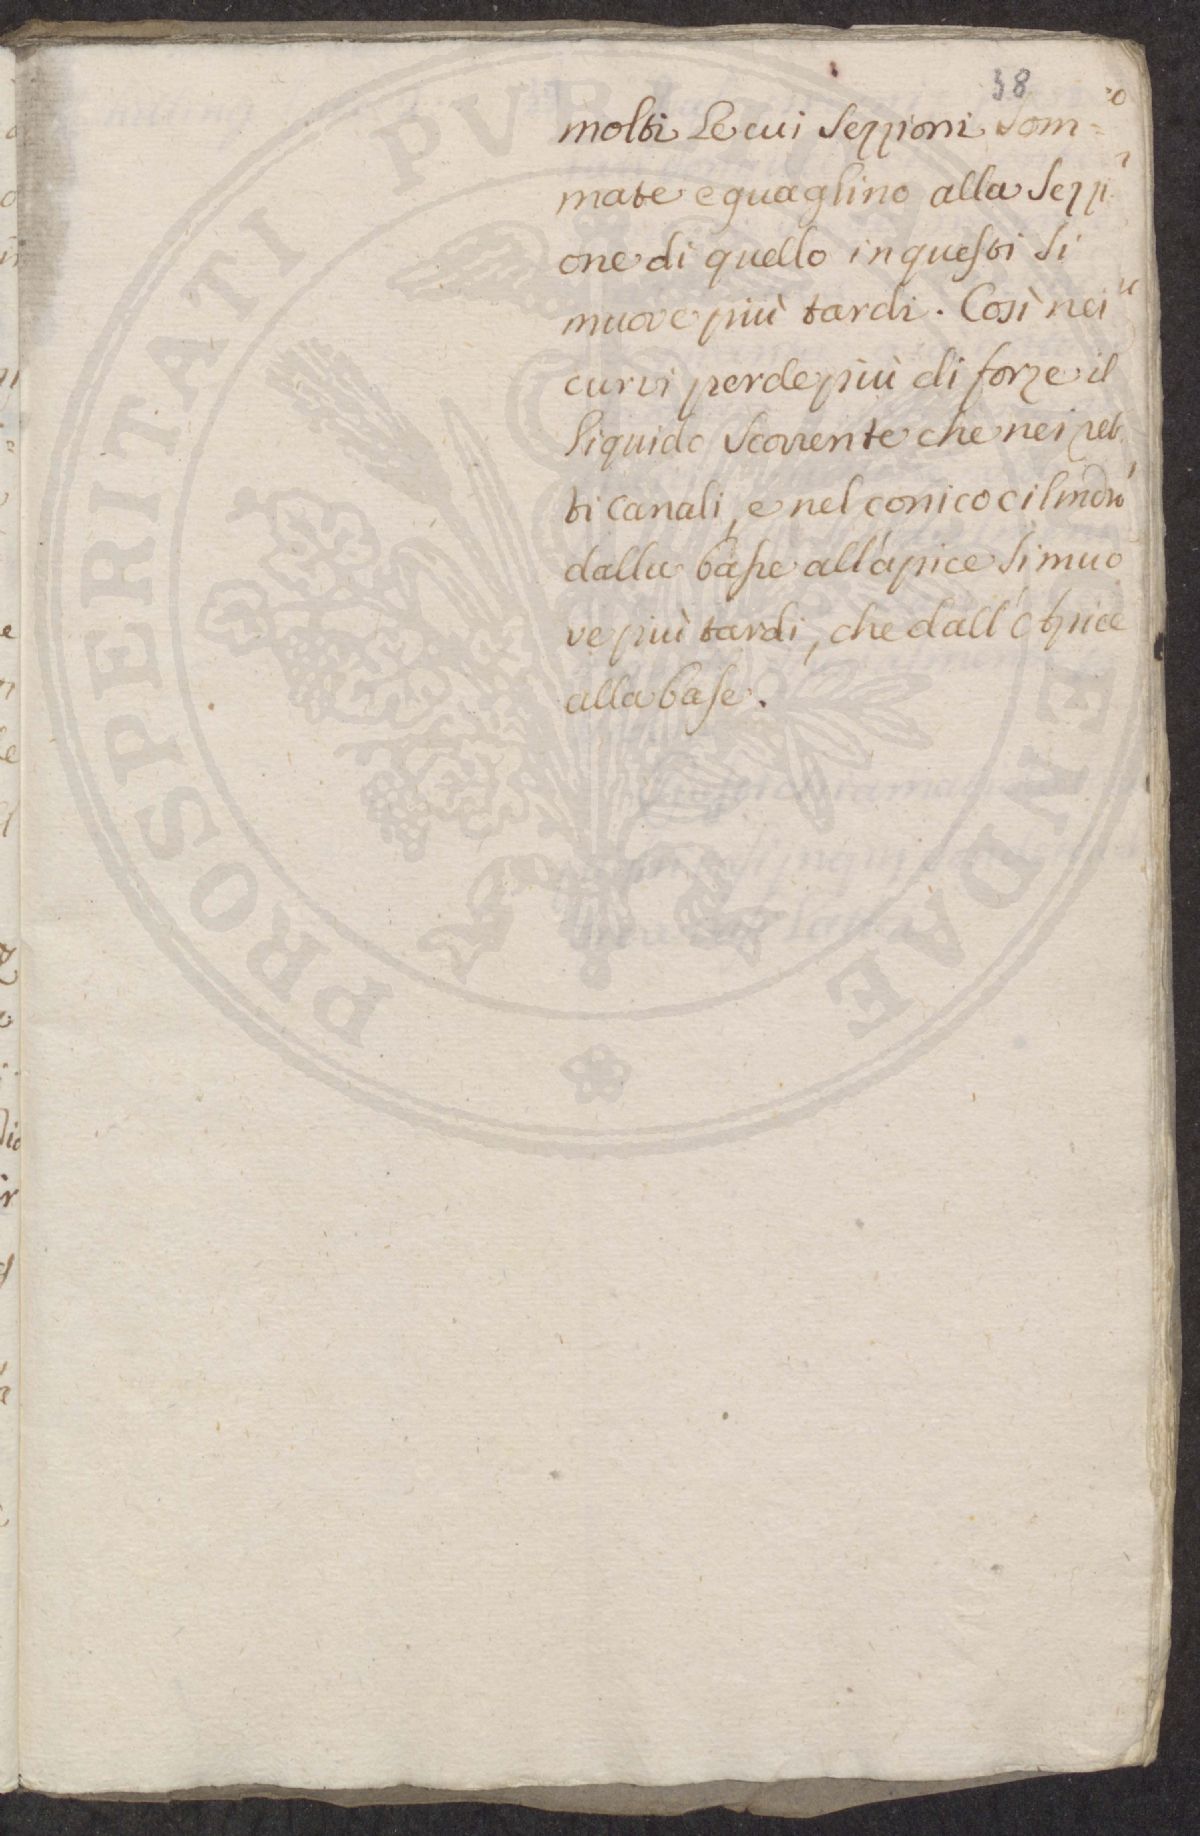 38
molti Le cui Sezzioni Som=
mate eguaglino alla Sezzi
one di quello in questi Si
muove più tardi. Così nei
curvi perde più di forze il
liquido Scorrente che nei ret
ti Canali, e nel conico cilindro
dalla base all'apice Si muo
ve più tardi, che dall'apice
alla base.
PROSPERITATI PVBL AVGENDAE